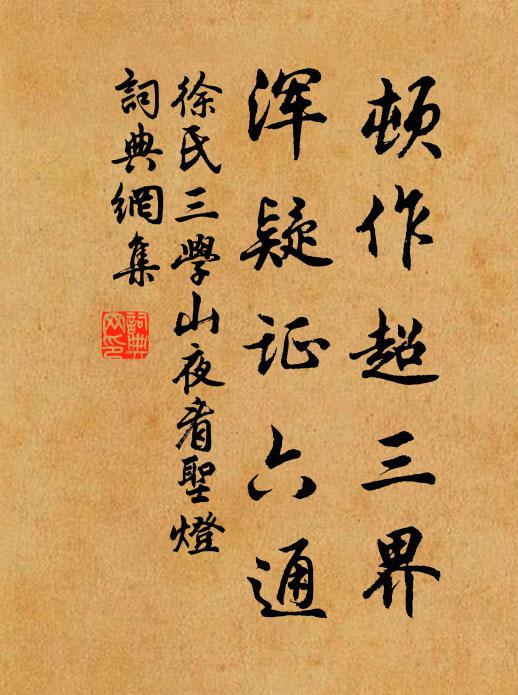 顿作超三界
浑疑证六通
徐氏三學山夜看聖燈
詞典網集
詞典
网印